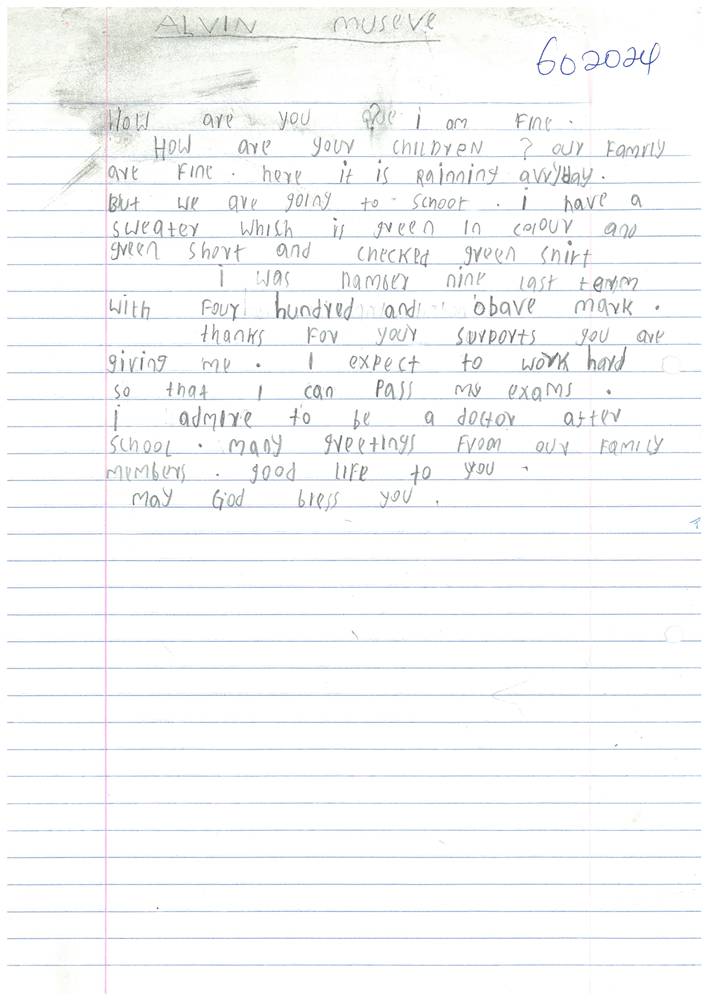 ALVIN MUSEVE
602024
How are you ? i am Fine .
How are your children ? our Family
are Fine . here it is Rainning avryday .
But we are going to school . i have a
sweater whish is green in colour and
green short and checked green shirt
i was namber nine last term
with Four hundred and obave mark .
thanks For your surports you are
giving me . I expect to work hard
so that I can pass my exams .
i admire to be a doctor after
school . many greetings From our Family
members . good life to you .
may God bless you .